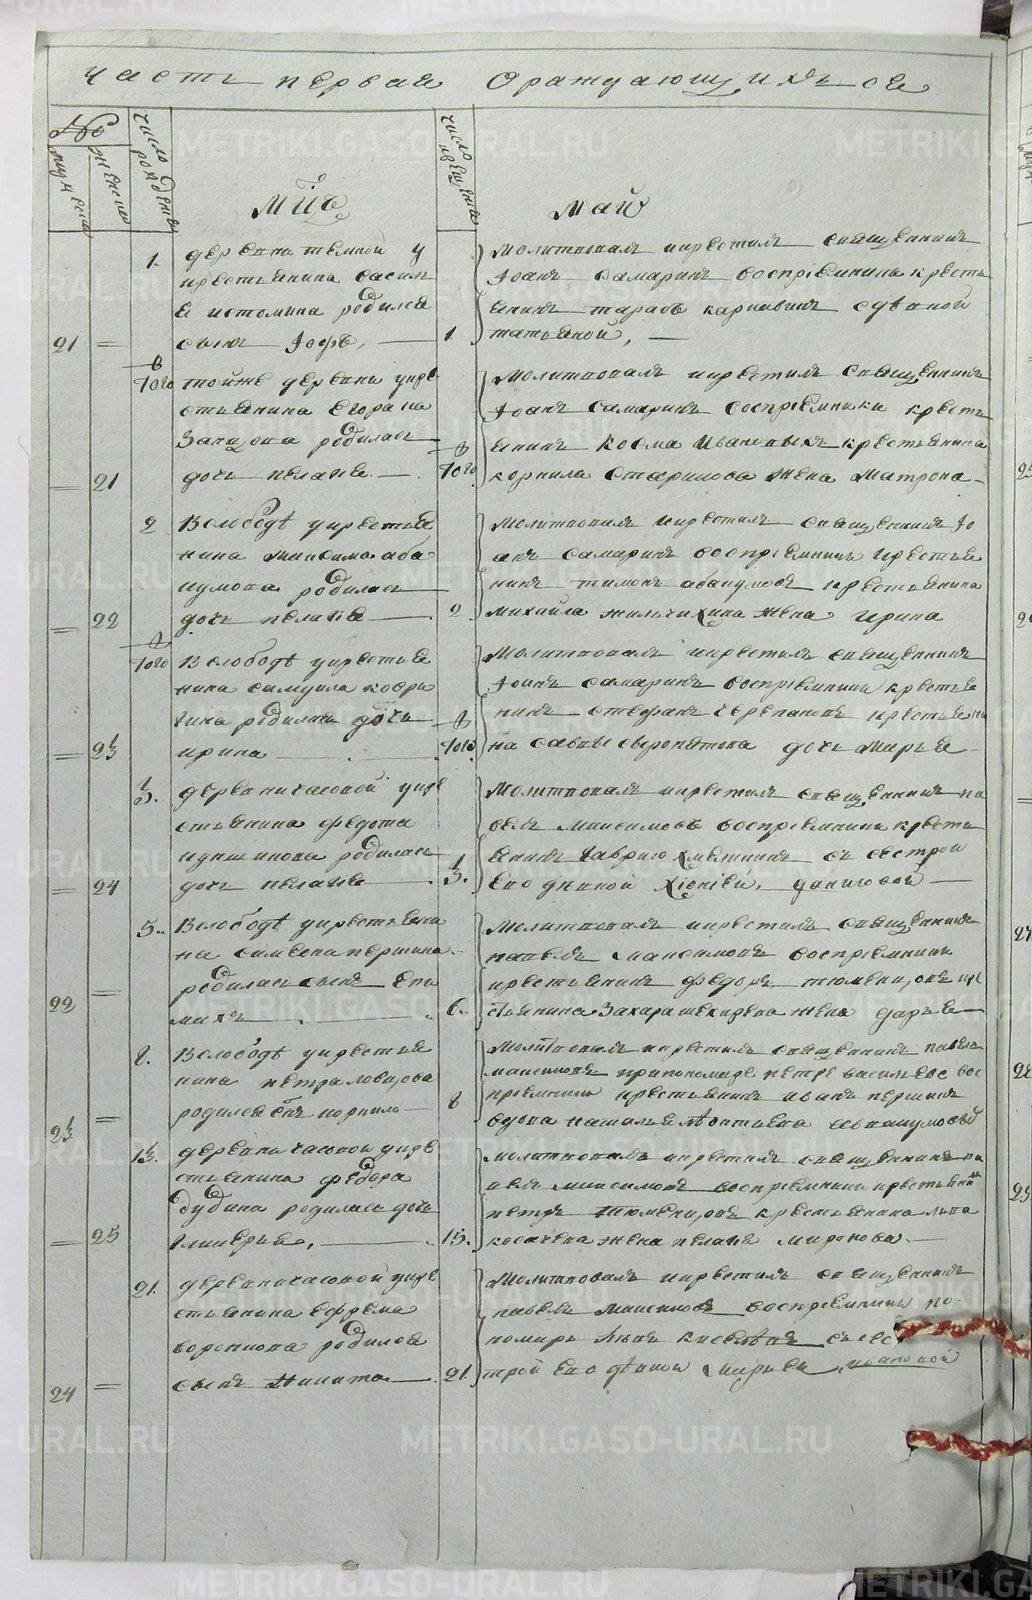 часть первая О раждающихъся
№
мужеска
женска
число рождения
число крещения
Мцъ
май
1. деревни темной у
крестьянина Василь
я истомина родился
21 = сынъ Iовъ, 1
молитвовалъ икрестилъ священникъ
Iоанъ Самаринъ воспрiемникъ кресть
янинъ тарасъ сдевкой
татьяной,
Того тойже деревни укре
стьянина Егора
родилась
= 21 дочь пелагея Того
Молитвовалъ икрестилъ священникъ
Iоанъ Самаринъ воспрiемники кресть
янинъ Косма Ивановыхъ крестьянина
корнила Старикова жена Матрона
2 Вслободѣ укрестья
нина максима аба
кумова родилась
= 22 дочь пелагея 2
Молитвовалъ икрестилъ священникъ Iо
анъ Самаринъ воспрiемникъ крестья
нинъ тимонъ абакумовъ крестьянина
михайла жена ирина
Того Вслободѣ укрестья
нина самуила
родилась дочь
= 23 ирина Того
Молитвовалъ икрестилъ священникъ
Iоанъ Самаринъ воспрiемники крестья
нинъ стефанъ черепановъ крестьяни
на савы сыропятова дочь Марья
3. деревни часовой укре
стьянина федота
кукшинова родилась
= 24 дочь пелагея 3.
Молитвовалъ икрестилъ священникъ па
велъ максимовъ воспрiемники кресть
янинъ гаврило с сестрой
его девкой даниловой
5. Вслободѣ укрестьяни
на симеона першина
родился сынъ Епи
22 = махъ 6.
Молитвовалъ икрестилъ священникъ
павелъ максимовъ воспрiемникъ
крестьянинъ федоръ тюменцовъ кре
стьянина Захара жена дарья
8. Вслободѣ укрестья
нина петра ловцова
23 = родился снъ корнило 8
Молитвовалъ икрестилъ священникъ павелъ
максимовъ припономаре петре васильеве вос
прiемники крестьянинъ иванъ першинъ
вдова наталья леонтьева
13. деревни часовой укре
стьянина федора
дудина родилась дочь
= 25 гликерья, 13.
Молитвовалъ икрестилъ священникъ па
велъ максимовъ воспрiемники крестьянинъ
петръ тюменцовъ крестьянина льва
косачева жена пелагея миронова
21. деревни часовой укре
стьянина Ефрема
воронкова родился
24 = сынъ Никита 21.
Молитвовалъ икрестилъ священникъ
павелъ максимовъ воспрiемники по
номарь съ сес
трой его девкой Марьей ивановой
METRIKI.GASO-URAL.RU